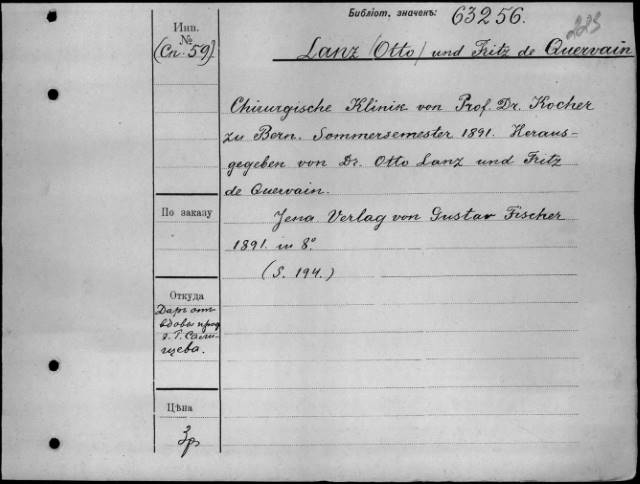 Библіот. значекъ: 63256.
223
Инв.
№
(Сп. 59)
Lanz (Otto) und Fritz de Quervain
Chirurgische Klinik von Prof. Dr. Kocher
zu Bern. Sommersemester 1891. Heraus-
gegeben von Dr. Otto Lanz und Fritz
de Quervain.
По заказу
Jena Verlag von Gustav Fischer
1891. in 8°
(S. 194.)
Откуда
Даръ отъ
вдовы проф.
Э. Г. Сали-
щева.
Цѣна
3р